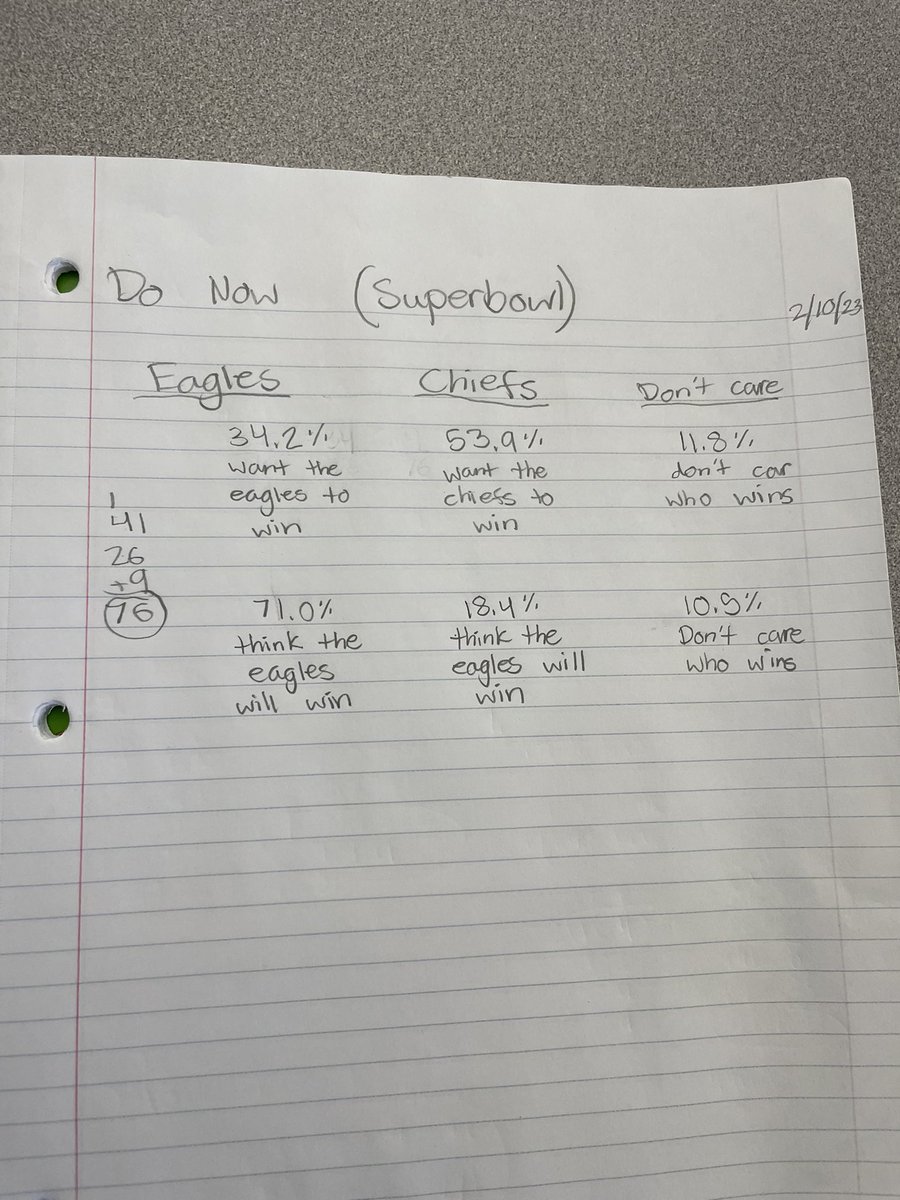 Do Now (Superbowl)
2/10/23
Eagles Chiefs Don't care
34.2% 53.9% 11.8%
want the want the don't car
eagles to chiefs to who wins
win win
1
41
26
+9
76
71.0% 18.4% 10.5%
think the think the Don't care
eagles eagles will who wins
will win win